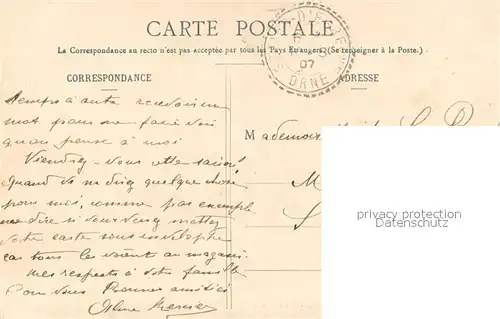 CARTE POSTALE
La Correspondance au recto n'est pas acceptée par tous les Pays Étrangers (Se renseigner à la Poste.)
CORRESPONDANCE
ADRESSE
07
ORNE
temps à autre recevoir un
mot pour me faire voir
qu'on pense à moi
Viendrez-vous cette saison
Quand vous me direz quelque chose
pour moi, comme par exemple
me dire si vous venez mettez
votre carte sous enveloppe
car tous les voient au magasin
Mes respects à votre famille
Pour vous Bonnes amitiés
Mademois
M
privacy protection